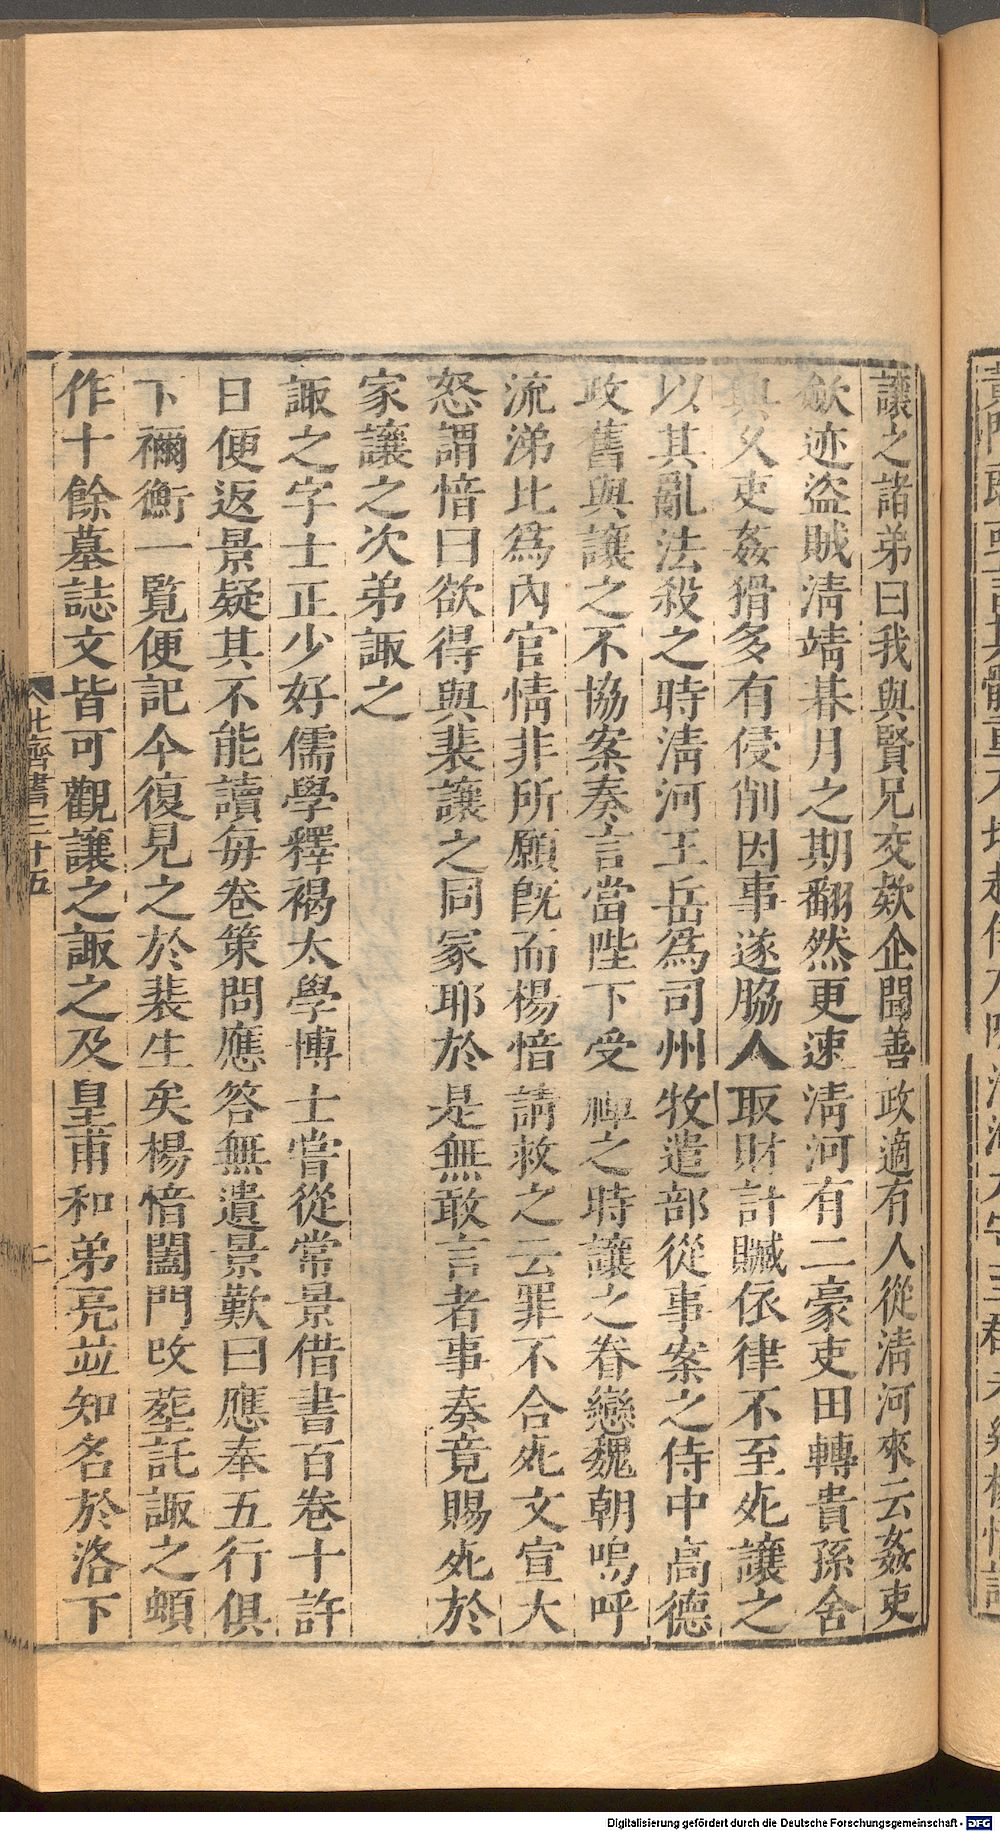 讓之諸弟曰我與賢兄交欵企聞善政適有人從清河來云姦吏
斂迹盜賊清靖朞月之期翻然更速清河有二豪吏田轉貴孫舍
興久吏姦猾多有侵削因事遂脇人取財計贓依律不至死讓之
以其亂法殺之時清河王岳為司州牧遣部從事案之侍中高德
政舊與讓之不協案奏言當陛下受禪之時讓之眷戀魏朝嗚呼
流涕比為內官情非所願既而楊愔請救之云罪不合死文宣大
怒謂愔曰欲得與裴讓之同冢耶於是無敢言者事奏竟賜死於
家讓之次弟諏之
諏之字士正少好儒學釋褐太學博士嘗從常景借書百卷十許
日便返景疑其不能讀每卷策問應答無遺景歎曰應奉五行俱
下禰衡一覽便記今復見之於裴生矣楊愔闔門改塟託諏之頓
作十餘墓誌文皆可觀讓之諏之及皇甫和弟亮並知名於洛下
北齊書三十五 二
Digitalisierung gefördert durch die Deutsche Forschungsgemeinschaft - DFG